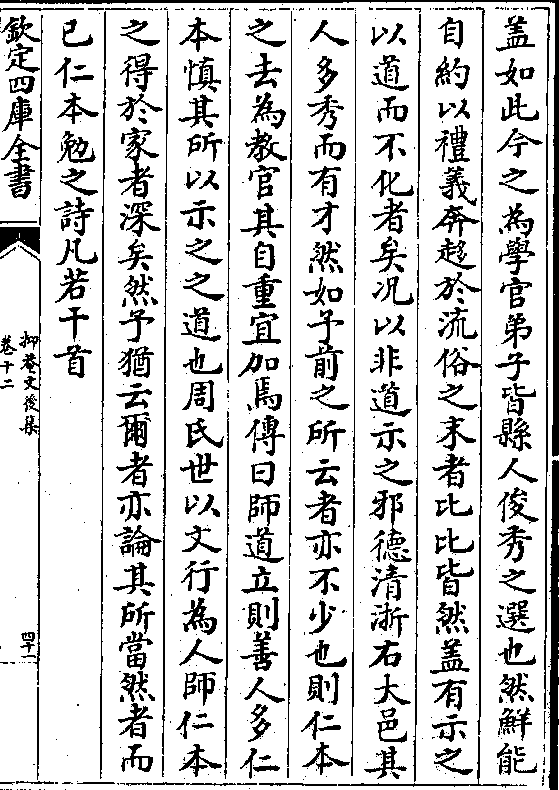 蓋如此今之為學官弟子皆縣人俊秀之選也然鮮能
自約以禮義奔趨於流俗之末者比比皆然蓋有示之
以道而不化者矣况以非道示之邪德清浙右大邑其
人多秀而有才然如予前之所云者亦不少也則仁本
之去為教官其自重宜加焉傳曰師道立則善人多仁
本慎其所以示之之道也周氏世以文行為人師仁本
之得於家者深矣然予猶云爾者亦論其所當然者而
已仁本勉之詩凡若干首
欽定四庫全書
抑菴文後集
卷十二
四十